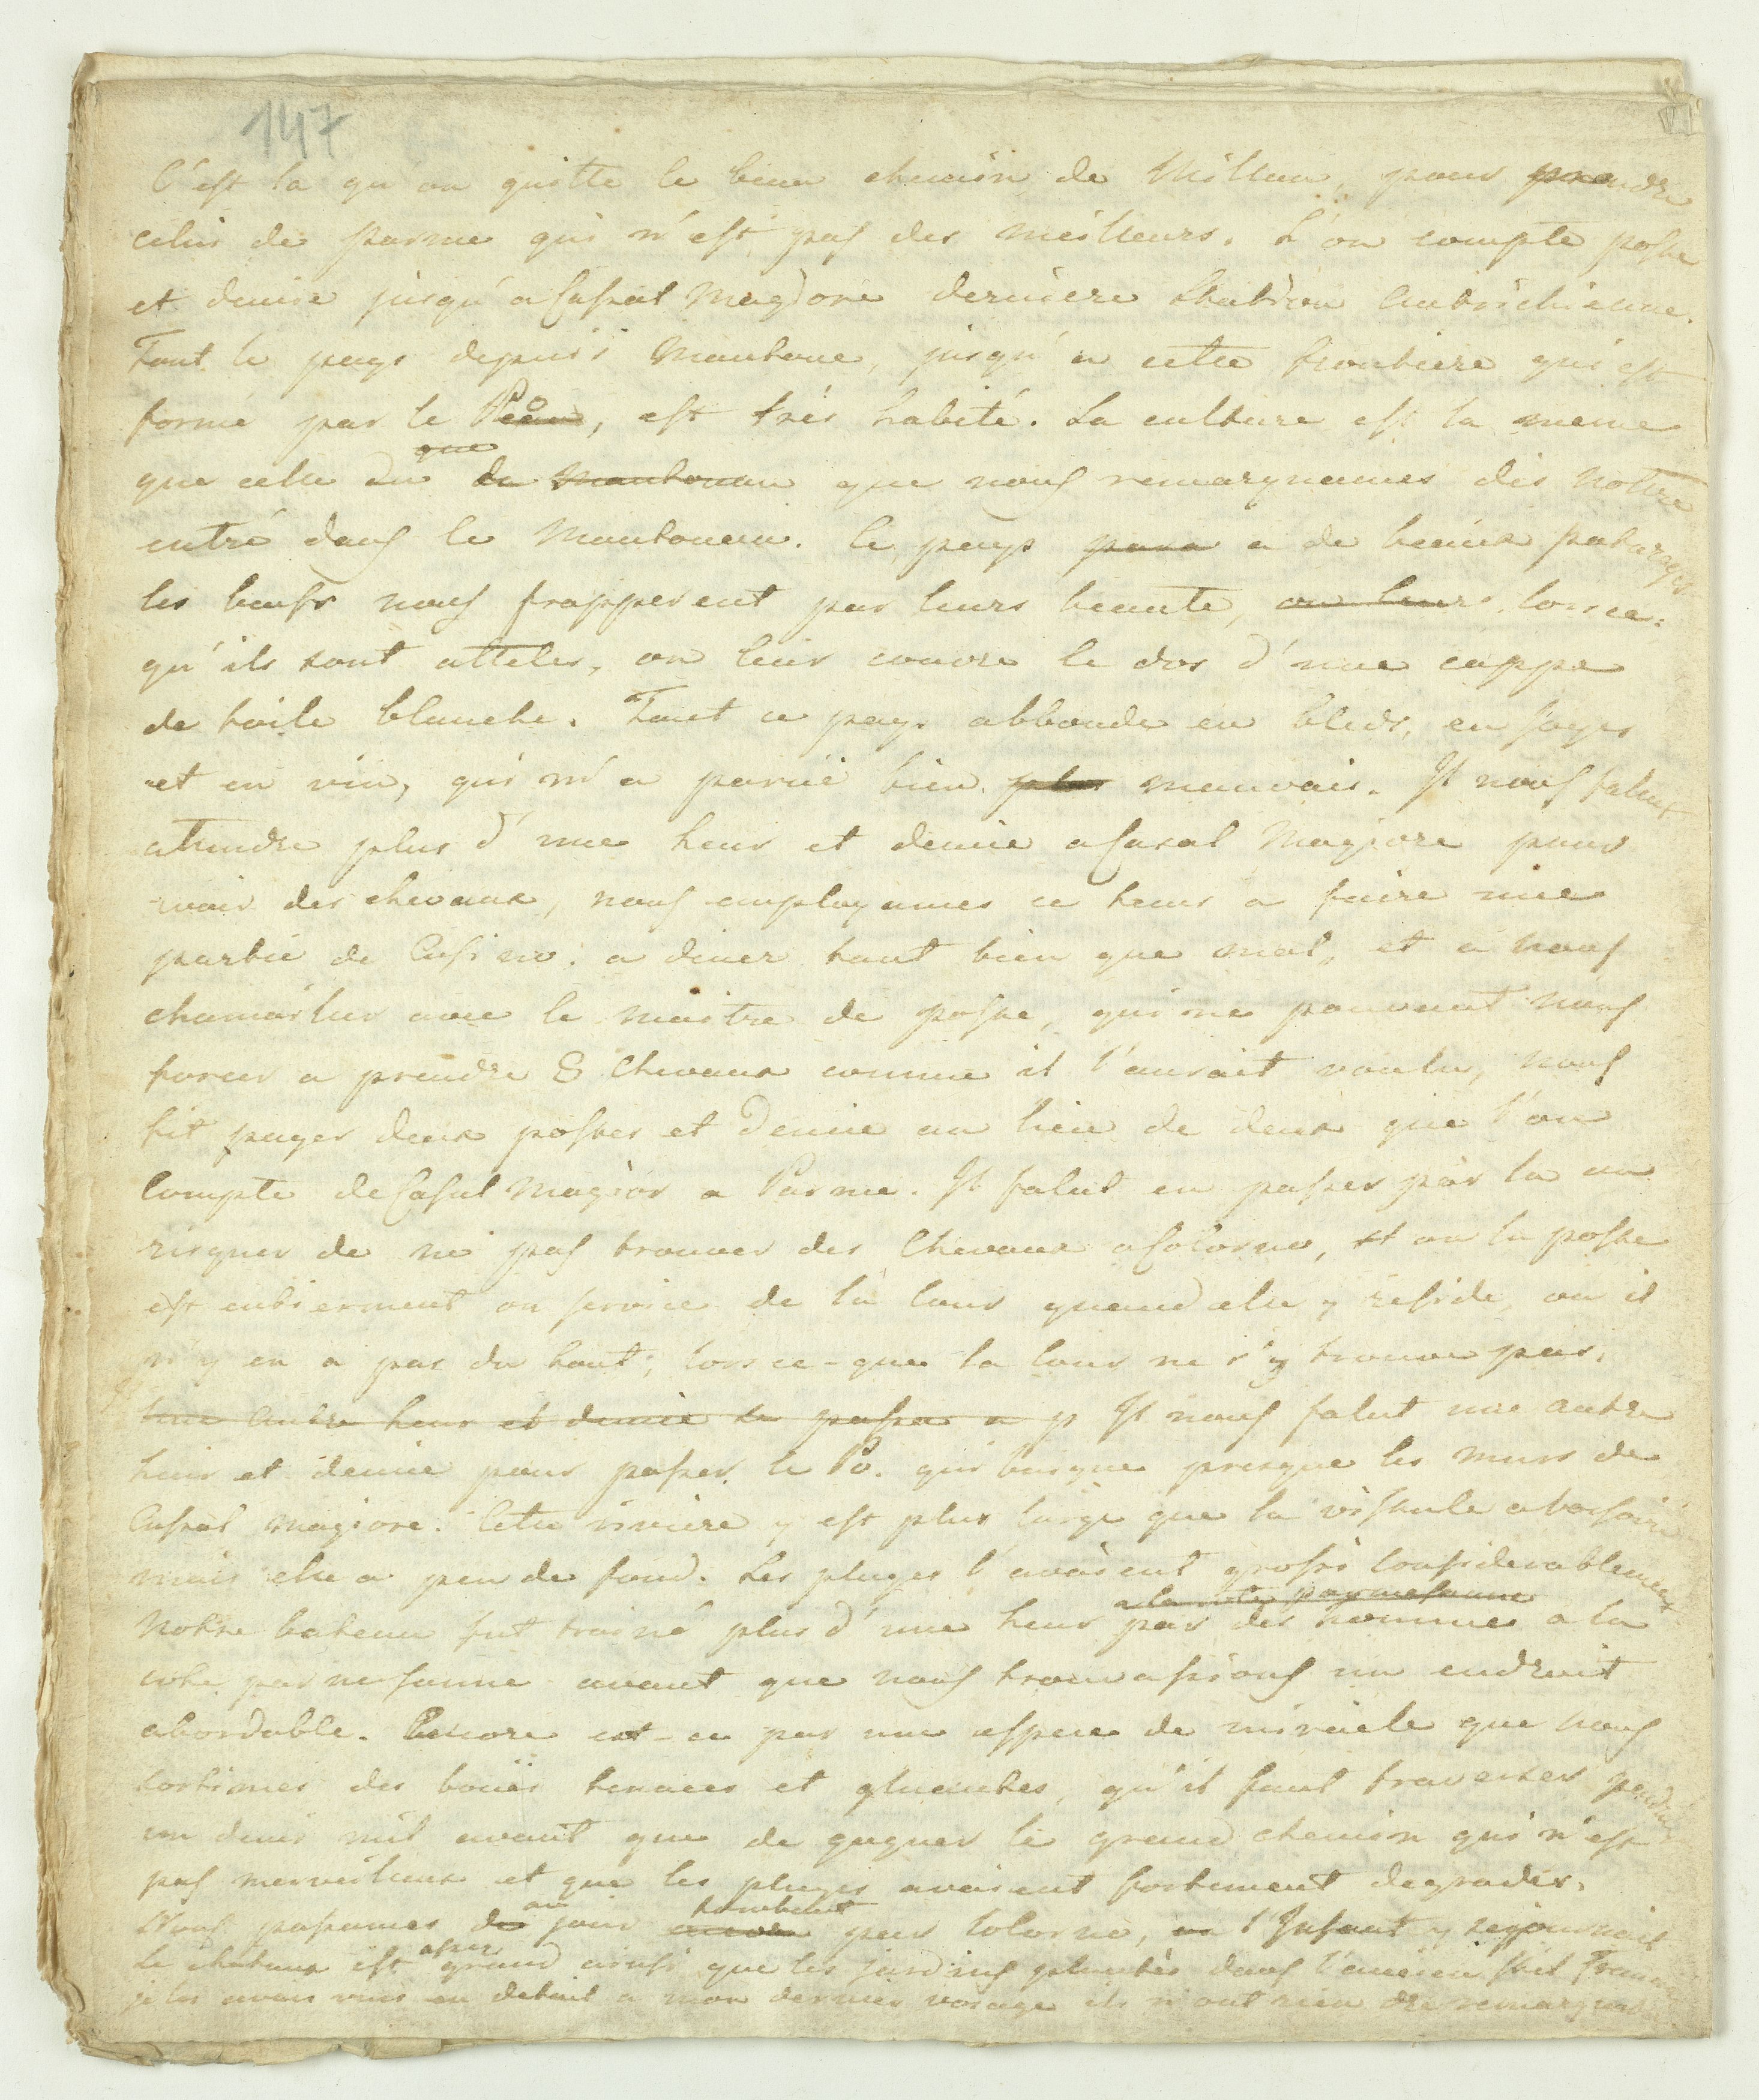 147
C'est la qu'on quitte le beau chemin de Millan, pour prendre
celui de parme qui n'est pas des meilleurs. L'on compte poste
et demie jusqu'a Casal Magiore derniere Station Autrichienne.
Tout le pays depuis Mantoue, jusqu'a cette frontiere qui est
formé par le Po, est très habité. La culture est la meme
que
que celle du de Mantouan que nous remarquames dès notre
entré dans le Mantouan. Ce pays para a de beaux paturages
les beufs nous frapperent par leurs beaute, on leurs lors ce-
qu'ils sont atteles, on leur couvre le dos d'une cappe
de toile blanche. Tout ce pays abbonde en bleds, en soyes
et en vin, qui m'a parüe bien plus mauvais. Il nous falut
attendre plus d'une heur et demie a Casal Magiore pour
avoir des chevaux, nous employames ce tems a faire une
partie de Casino. a diner tant bien que mal, et a nous
chamailler avec le maitre de poste, qui ne pouvant nous
forcer a prendre 8 Chevaux comme il l'aurait voulu, nous
fit payer deux postes et demie au lieu de deux que l'on
Compte de Casal Magiòr a Parme. Il falut en passer par la ou
risquer de ne pas trouver des Chevaux a Colorno, et ou la poste
est entierement au service de la Cour quand elle y reside, ou il
n'y en a pas du tout, lors ce-que la Cour ne s'y trouve pas.
Une Autre heur et demie se passa a p Il nous falut une autre
heur et demie pour passer le Po. qui baigne presque les murs de
Casal magiore. Cette riviere y est plus large que la vistule a Varsovie
mais elle a peu de fond. Les pluyes l'avaient grossi Considerablement
a la cote parmesanne
Notre bateau fut trainé plus d'une heur par des hommes a la
cote parmesanne avant que nous trouvassions un endroit
abordable. Encore est-ce par une espece de miracle que nous
sortimes des bouës tenaces et gluantes, qu'il faut traverser pendant
un demi mil avant que de gagner le grand chemin qui n'est
pas merveilleux et que les pluyes avaient fortement degradés.
au tombant
Nous passames de jour encore par Colorno, ou l'Infant y sejournait
assez
Le chateau est grand ainsi que les jardins plantès dans l'ancien stil Francais
je les avais vus en detail a mon dernier voiage ils n'ont rien de remarquable